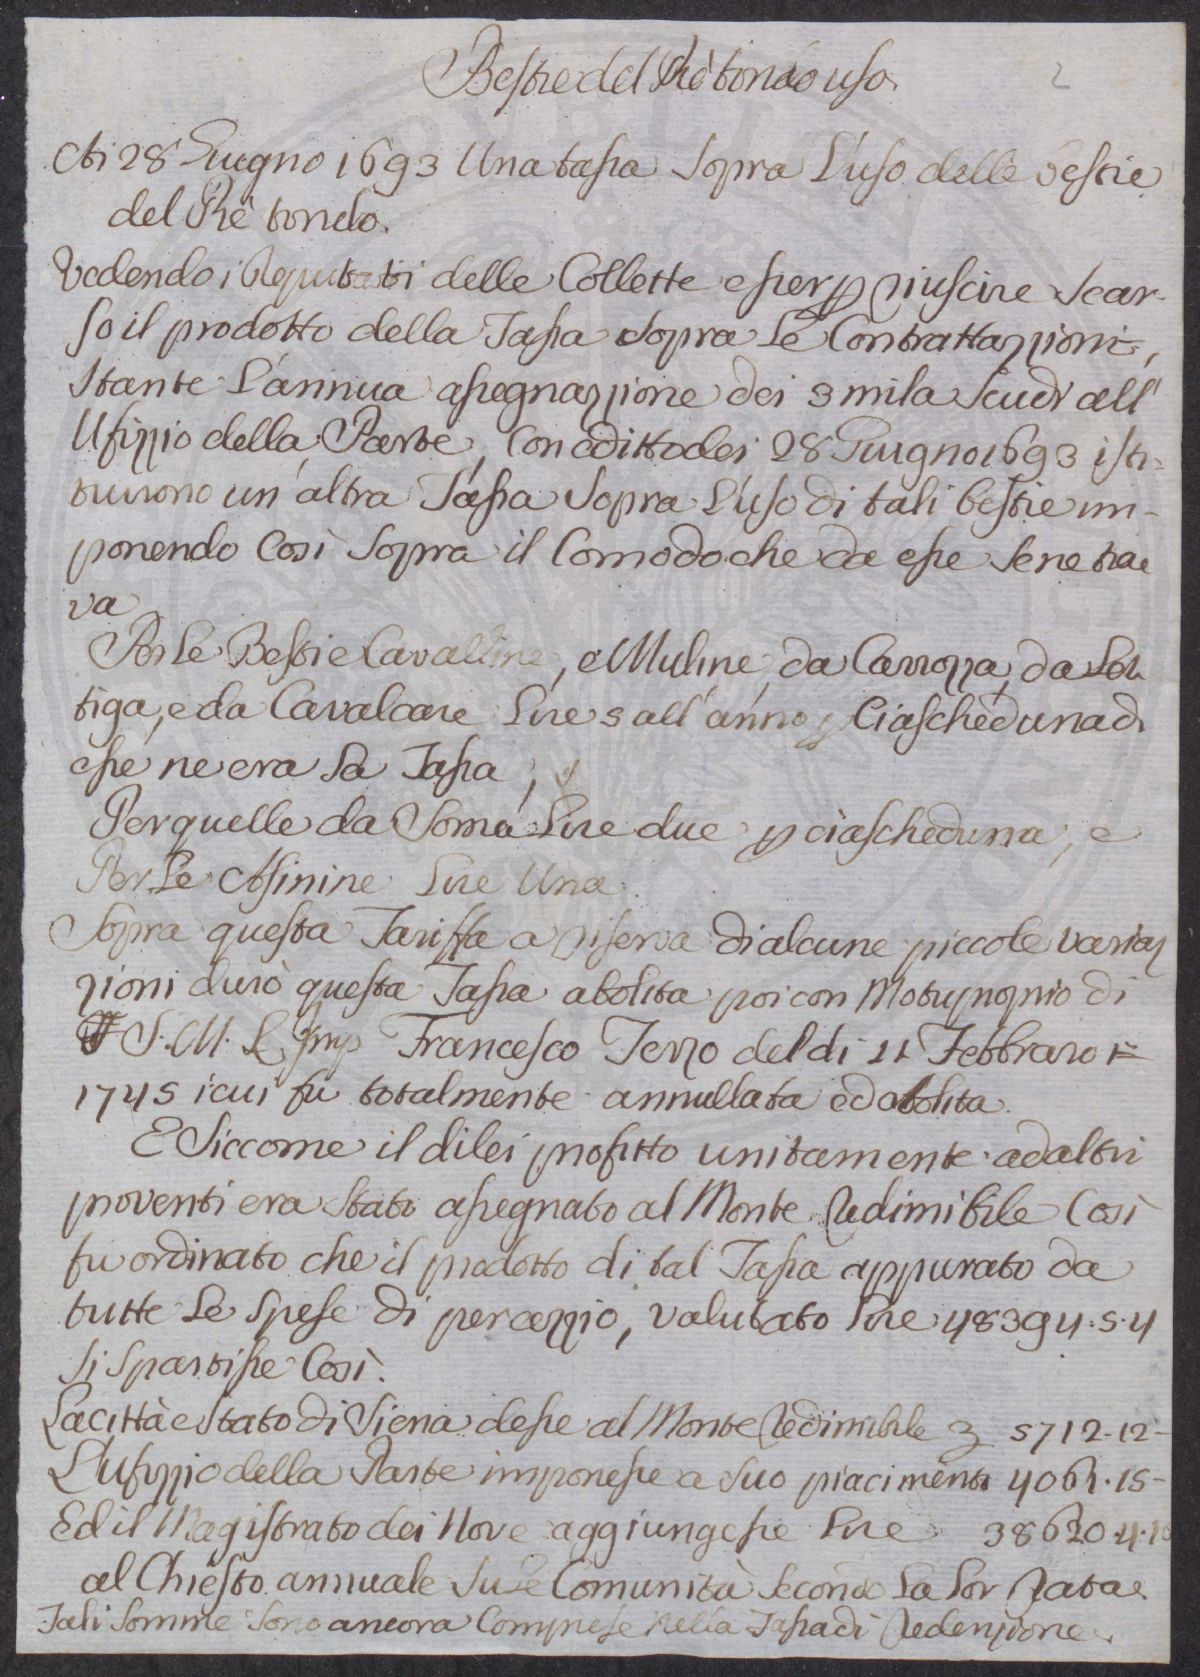 Bestie del Piè tondo uso
2
Ai 28 Giugno 1693 Una tassa sopra l'uso delle bestie
del Piè tondo.
Vedendo i Deputati delle Collette esser p riuscire scar-
so il prodotto della Tassa sopra le Contrattazzioni,
stante l'annua assegnazzione dei 3 mila scudi all'
Ufizzio della Parte, con editto dei 28 Giugno 1693 isti-
tuirono un'altra Tassa sopra l'uso di tali bestie im-
ponendo così sopra il Comodo che da esse se ne trae
va
Per le Bestie Cavalline, e Muline, da Carrozza, da Let
tiga, e da Cavalcare Lire 5 all'anno p Ciascheduna di
esse ne era la Tassa,
Per quelle da Soma Lire due p ciascheduna, e
Per le Asinine Lire Una.
Sopra questa Tariffa a riserva di alcune piccole variaz
zioni durò questa Tassa abolita poi con Motuproprio di
S. M. L Imp Francesco Terzo del dì 11 Febbraro
1745 i cui fu totalmente annullata ed abolita.
E Siccome il di lei profitto unitamente ad altri
proventi era stato assegnato al Monte Redimibile Così
fu ordinato che il prodotto di tal Tassa appurato da
tutte le spese di percazzio, valutato Lire 48394.5.4
si spartisse Così.
La città e Stato di Siena desse al Monte Redimibile 5712.12-
L'ufizzio della Parte imponesse a suo piacimento 4061.15-
Ed il Magistrato dei Nove aggiungesse Lire 38620.4.
al Chiesto annuale su le Comunità secondo la lor Rata e
Tali somme sono ancora Comprese nella Tassa di Redenzione.